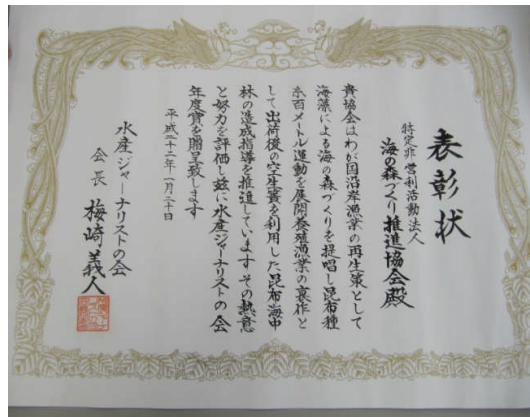 表彰状
特定非営利活動法人
海の森づくり推進協会殿
貴協会はわが国沿岸漁業の再生策として
海藻による海の森づくりを提唱し昆布種
糸百メートル運動を展開養殖漁業の裏作と
して出荷後の空生簀を利用した昆布海中
林の造成指導を推進しています その熱意
と努力を評価し玆に水産ジャーナリストの会
年度賞を贈呈致します
平成二十二年一月二十日
水産ジャーナリストの会
会長 梅崎義人